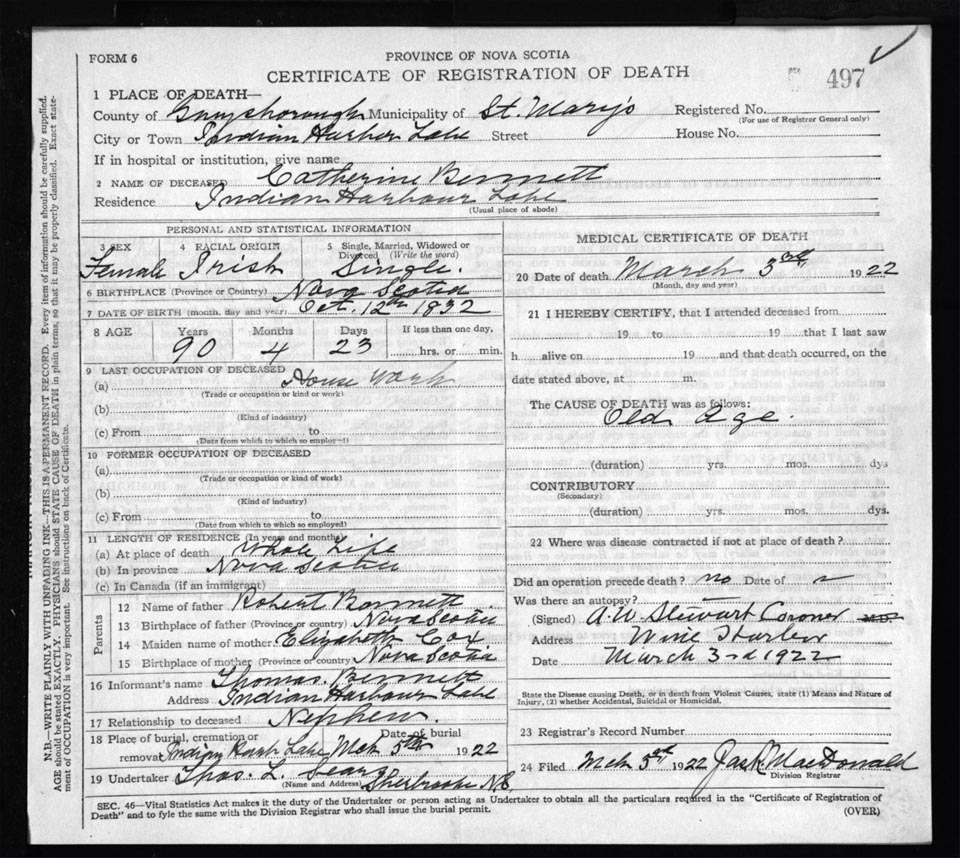 FORM 6
PROVINCE OF NOVA SCOTIA
CERTIFICATE OF REGISTRATION OF DEATH
497
1 PLACE OF DEATH—
County of Guysborough Municipality of St. Mary's Registered No.
(For use of Registrar General only)
City or Town Indian Harbor Lake Street House No.
If in hospital or institution, give name
2 NAME OF DECEASED Catherine Bennett
Residence Indian Harbour Lake
(Usual place of abode)
PERSONAL AND STATISTICAL INFORMATION
3 SEX 4 RACIAL ORIGIN 5 Single, Married, Widowed or Divorced (Write the word)
Female Irish Single.
6 BIRTHPLACE (Province or Country) Nova Scotia
7 DATE OF BIRTH (month, day and year) Oct. 12th 1832
8 AGE Years Months Days If less than one day,
90 4 23 hrs. or min.
9 LAST OCCUPATION OF DECEASED
(a) House Work
(Trade or occupation or kind or work)
(b)
(Kind of industry)
(c) From to
(Date from which to which so employed)
10 FORMER OCCUPATION OF DECEASED
(a)
(Trade or occupation or kind of work)
(b)
(Kind of industry)
(c) From to
(Date from which to which so employed)
11 LENGTH OF RESIDENCE (In years and months)
(a) At place of death Whole Life
(b) In province Nova Scotia
(c) In Canada (if an immigrant)
Parents
12 Name of father Robert Bennett
13 Birthplace of father (Province or country) Nova Scotia
14 Maiden name of mother Elizabeth Cox
15 Birthplace of mother (Province or country) Nova Scotia
16 Informant's name Thomas. Bennett
Address Indian Harbour Lake
17 Relationship to deceased Nephew.
18 Place of burial, cremation or removal Date of burial
Indian Harb Lake Mch 5th 1922
19 Undertaker Thos. L. Sears
(Name and Address) Sherbrooke N.S.
MEDICAL CERTIFICATE OF DEATH
20 Date of death March 3rd, 1922
(Month, day and year)
21 I HEREBY CERTIFY, that I attended deceased from
19 to 19 that I last saw
h alive on 19 and that death occurred, on the
date stated above, at m.
The CAUSE OF DEATH was as follows:
Old Age.
(duration) yrs. mos. dys
CONTRIBUTORY
(Secondary)
(duration) yrs. mos. dys.
22 Where was disease contracted if not at place of death?
Did an operation precede death? no Date of
Was there an autopsy?
(Signed) A. W. Stewart Coroner M.D.
Address Wine Harbor
Date March 3rd 1922
State the Disease causing Death, or in death from Violent Causes, state (1) Means and Nature of
Injury, (2) whether Accidental, Suicidal or Homicidal.
23 Registrar's Record Number
24 Filed Mch 5th 1922 Jas. R. MacDonald
Division Registrar
SEC. 46—Vital Statistics Act makes it the duty of the Undertaker or person acting as Undertaker to obtain all the particulars required in the "Certificate of Registration of
Death" and to fyle the same with the Division Registrar who shall issue the burial permit. (OVER)
N.B.—WRITE PLAINLY WITH UNFADING INK—THIS IS A PERMANENT RECORD. Every item of information should be carefully supplied.
AGE should be stated EXACTLY. PHYSICIANS should STATE CAUSE OF DEATH in plain terms, so that it may be properly classified. Exact state-
ment of OCCUPATION is very important. See instructions on back of Certificate.